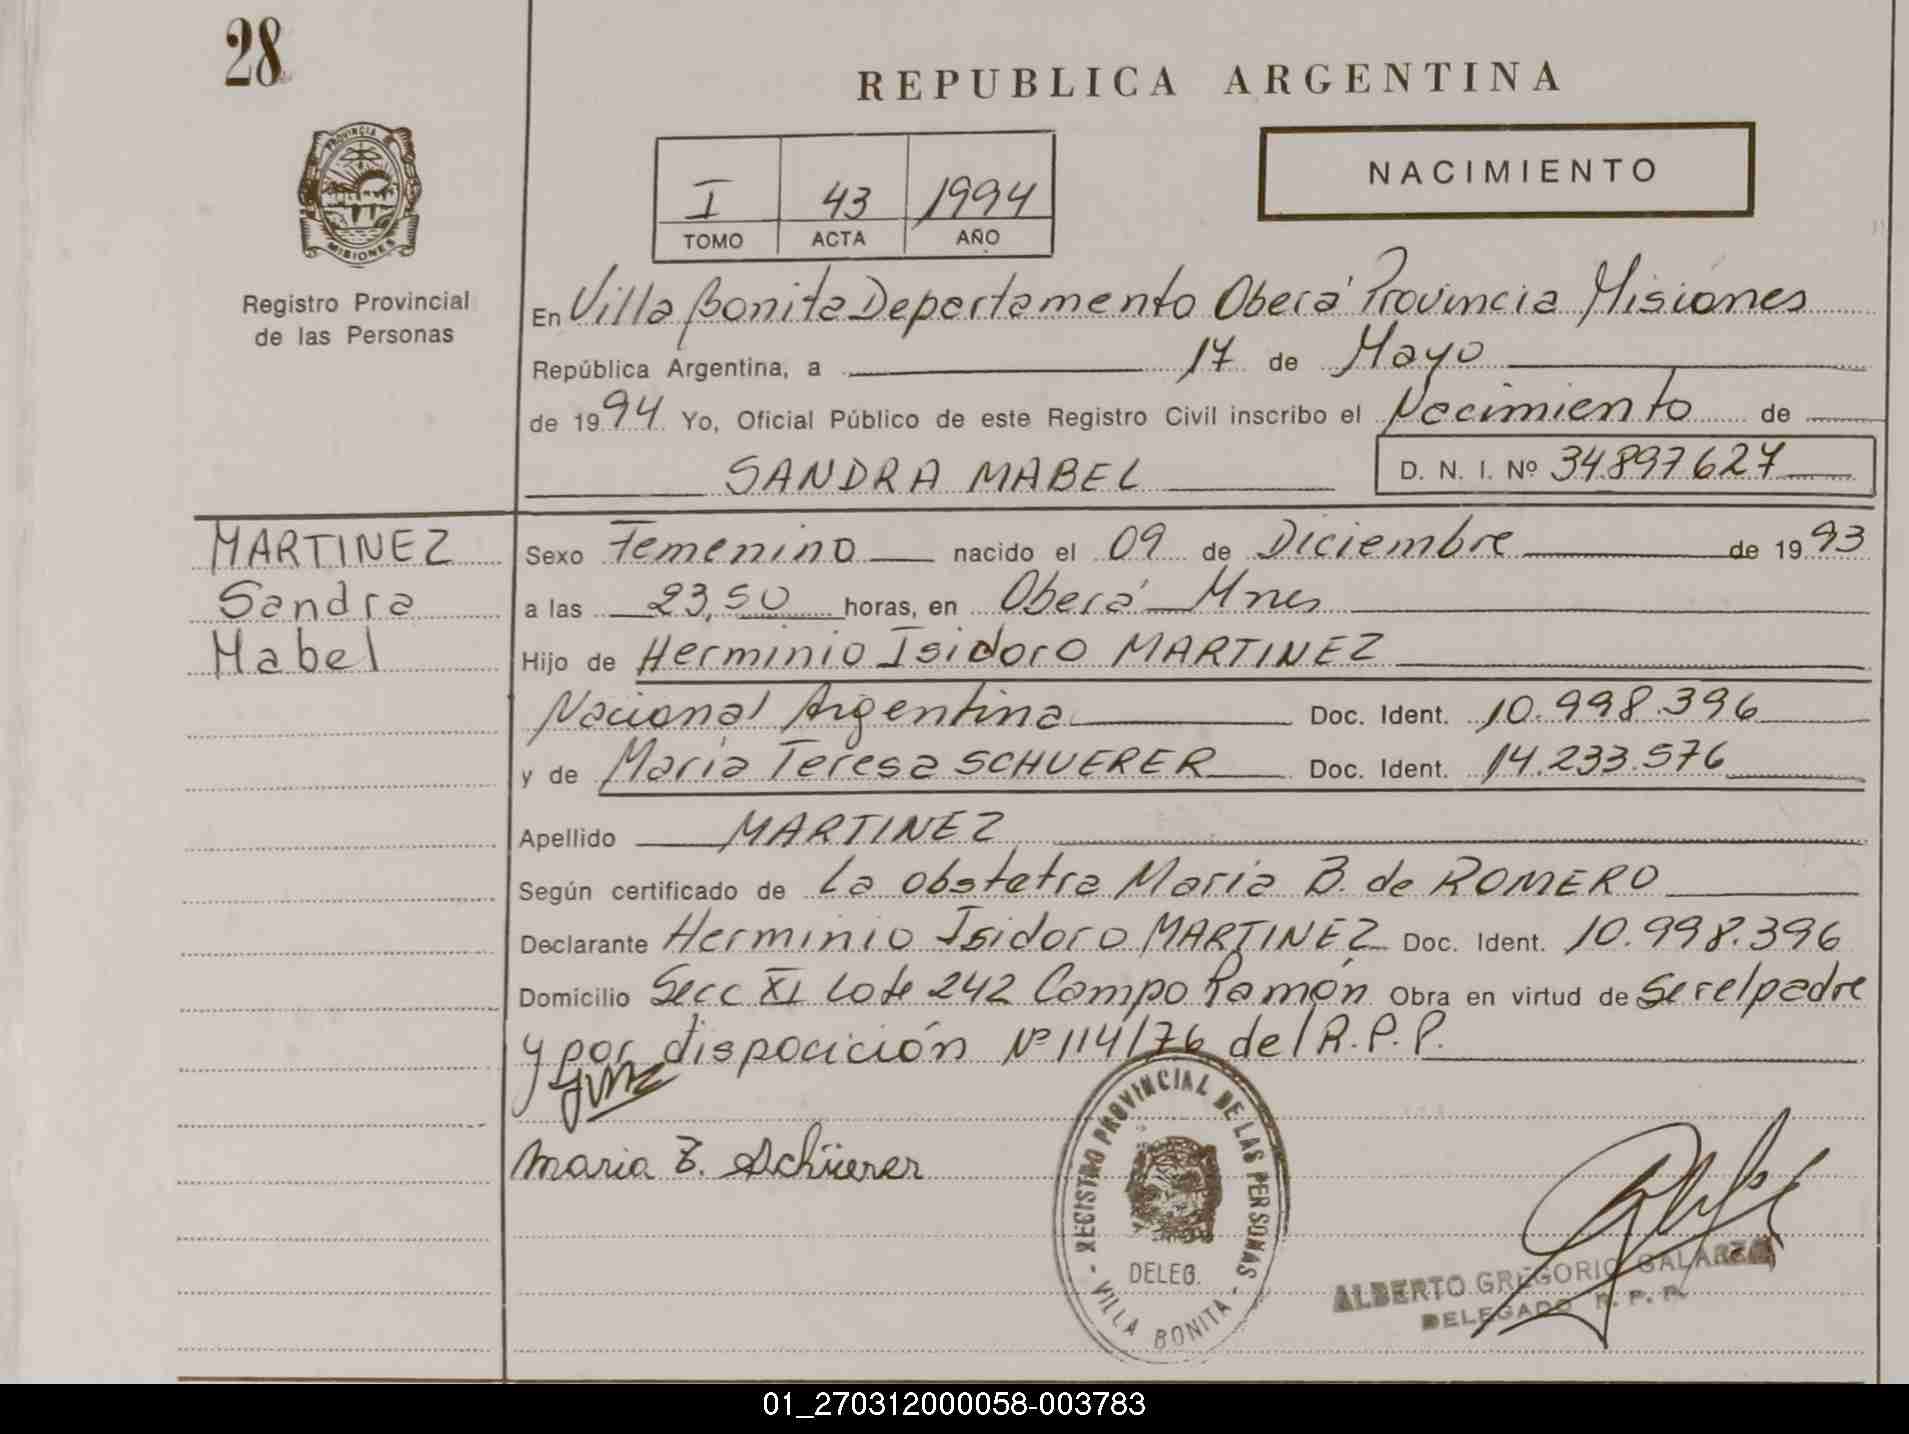 28
REPUBLICA ARGENTINA
PROVINCIA
MISIONES
Registro Provincial
de las Personas
I 43 1994
TOMO ACTA AÑO
NACIMIENTO
En Villa Bonita Departamento Oberá Provincia Misiones
República Argentina, a 17 de Mayo
de 1994 Yo, Oficial Público de este Registro Civil inscribo el Nacimiento de
SANDRA MABEL D. N. I. Nº 34.897627
MARTINEZ
Sandra
Mabel
Sexo Femenino nacido el 09 de Diciembre de 1993
a las 23,50 horas, en Oberá Mnes
Hijo de Herminio Isidoro MARTINEZ
Nacional Argentina Doc. Ident. 10.998.396
y de María Teresa SCHUERER Doc. Ident. 14.233.576
Apellido MARTINEZ
Según certificado de la obstetra María B. de ROMERO
Declarante Herminio Isidoro MARTINEZ Doc. Ident. 10.998.396
Domicilio Secc XI Lote 242 Campo Ramón Obra en virtud de ser el padre
y por disposición Nº 114/76 del R.P.P.
Maria T. Schüerer
REGISTRO PROVINCIAL DE LAS PERSONAS
DELEG.
- VILLA BONITA -
ALBERTO GREGORIO GALARZA
DELEGADO R. P. P.
01_270312000058-003783